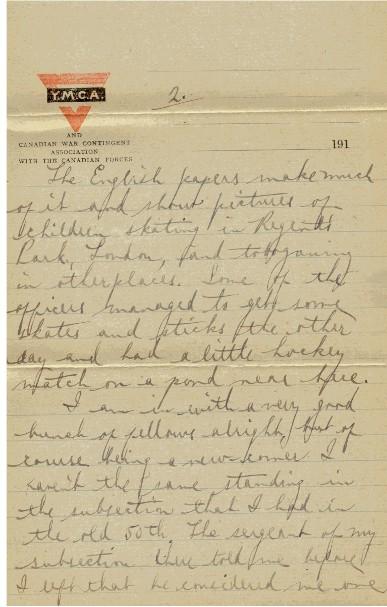 Y.M.C.A.
2.
AND
CANADIAN WAR CONTINGENT
ASSOCIATION
WITH THE CANADIAN FORCES
191
The English papers make much
of it and show pictures of
children skating in Regents
Park, London, and tobogganing
in other places. Some of the
officers managed to get some
skates and sticks the other
day and had a little hockey
match on a pond near here.
I am in with a very good
bunch of fellows alright, but of
course being a new-comer I
haven't the same standing in
the subsection that I had in
the old 50th. The sergeant of my
subsection there told me before
I left that he considered me one